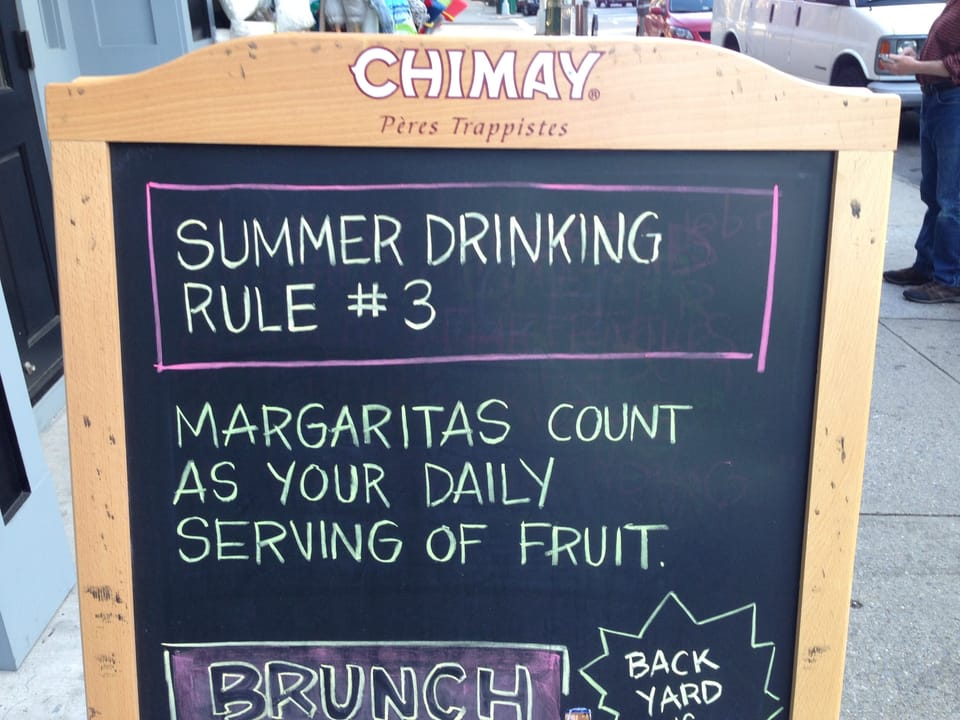 CHIMAY®
Pères Trappistes
SUMMER DRINKING
RULE #3
MARGARITAS COUNT
AS YOUR DAILY
SERVING OF FRUIT.
BRUNCH
BACK
YARD